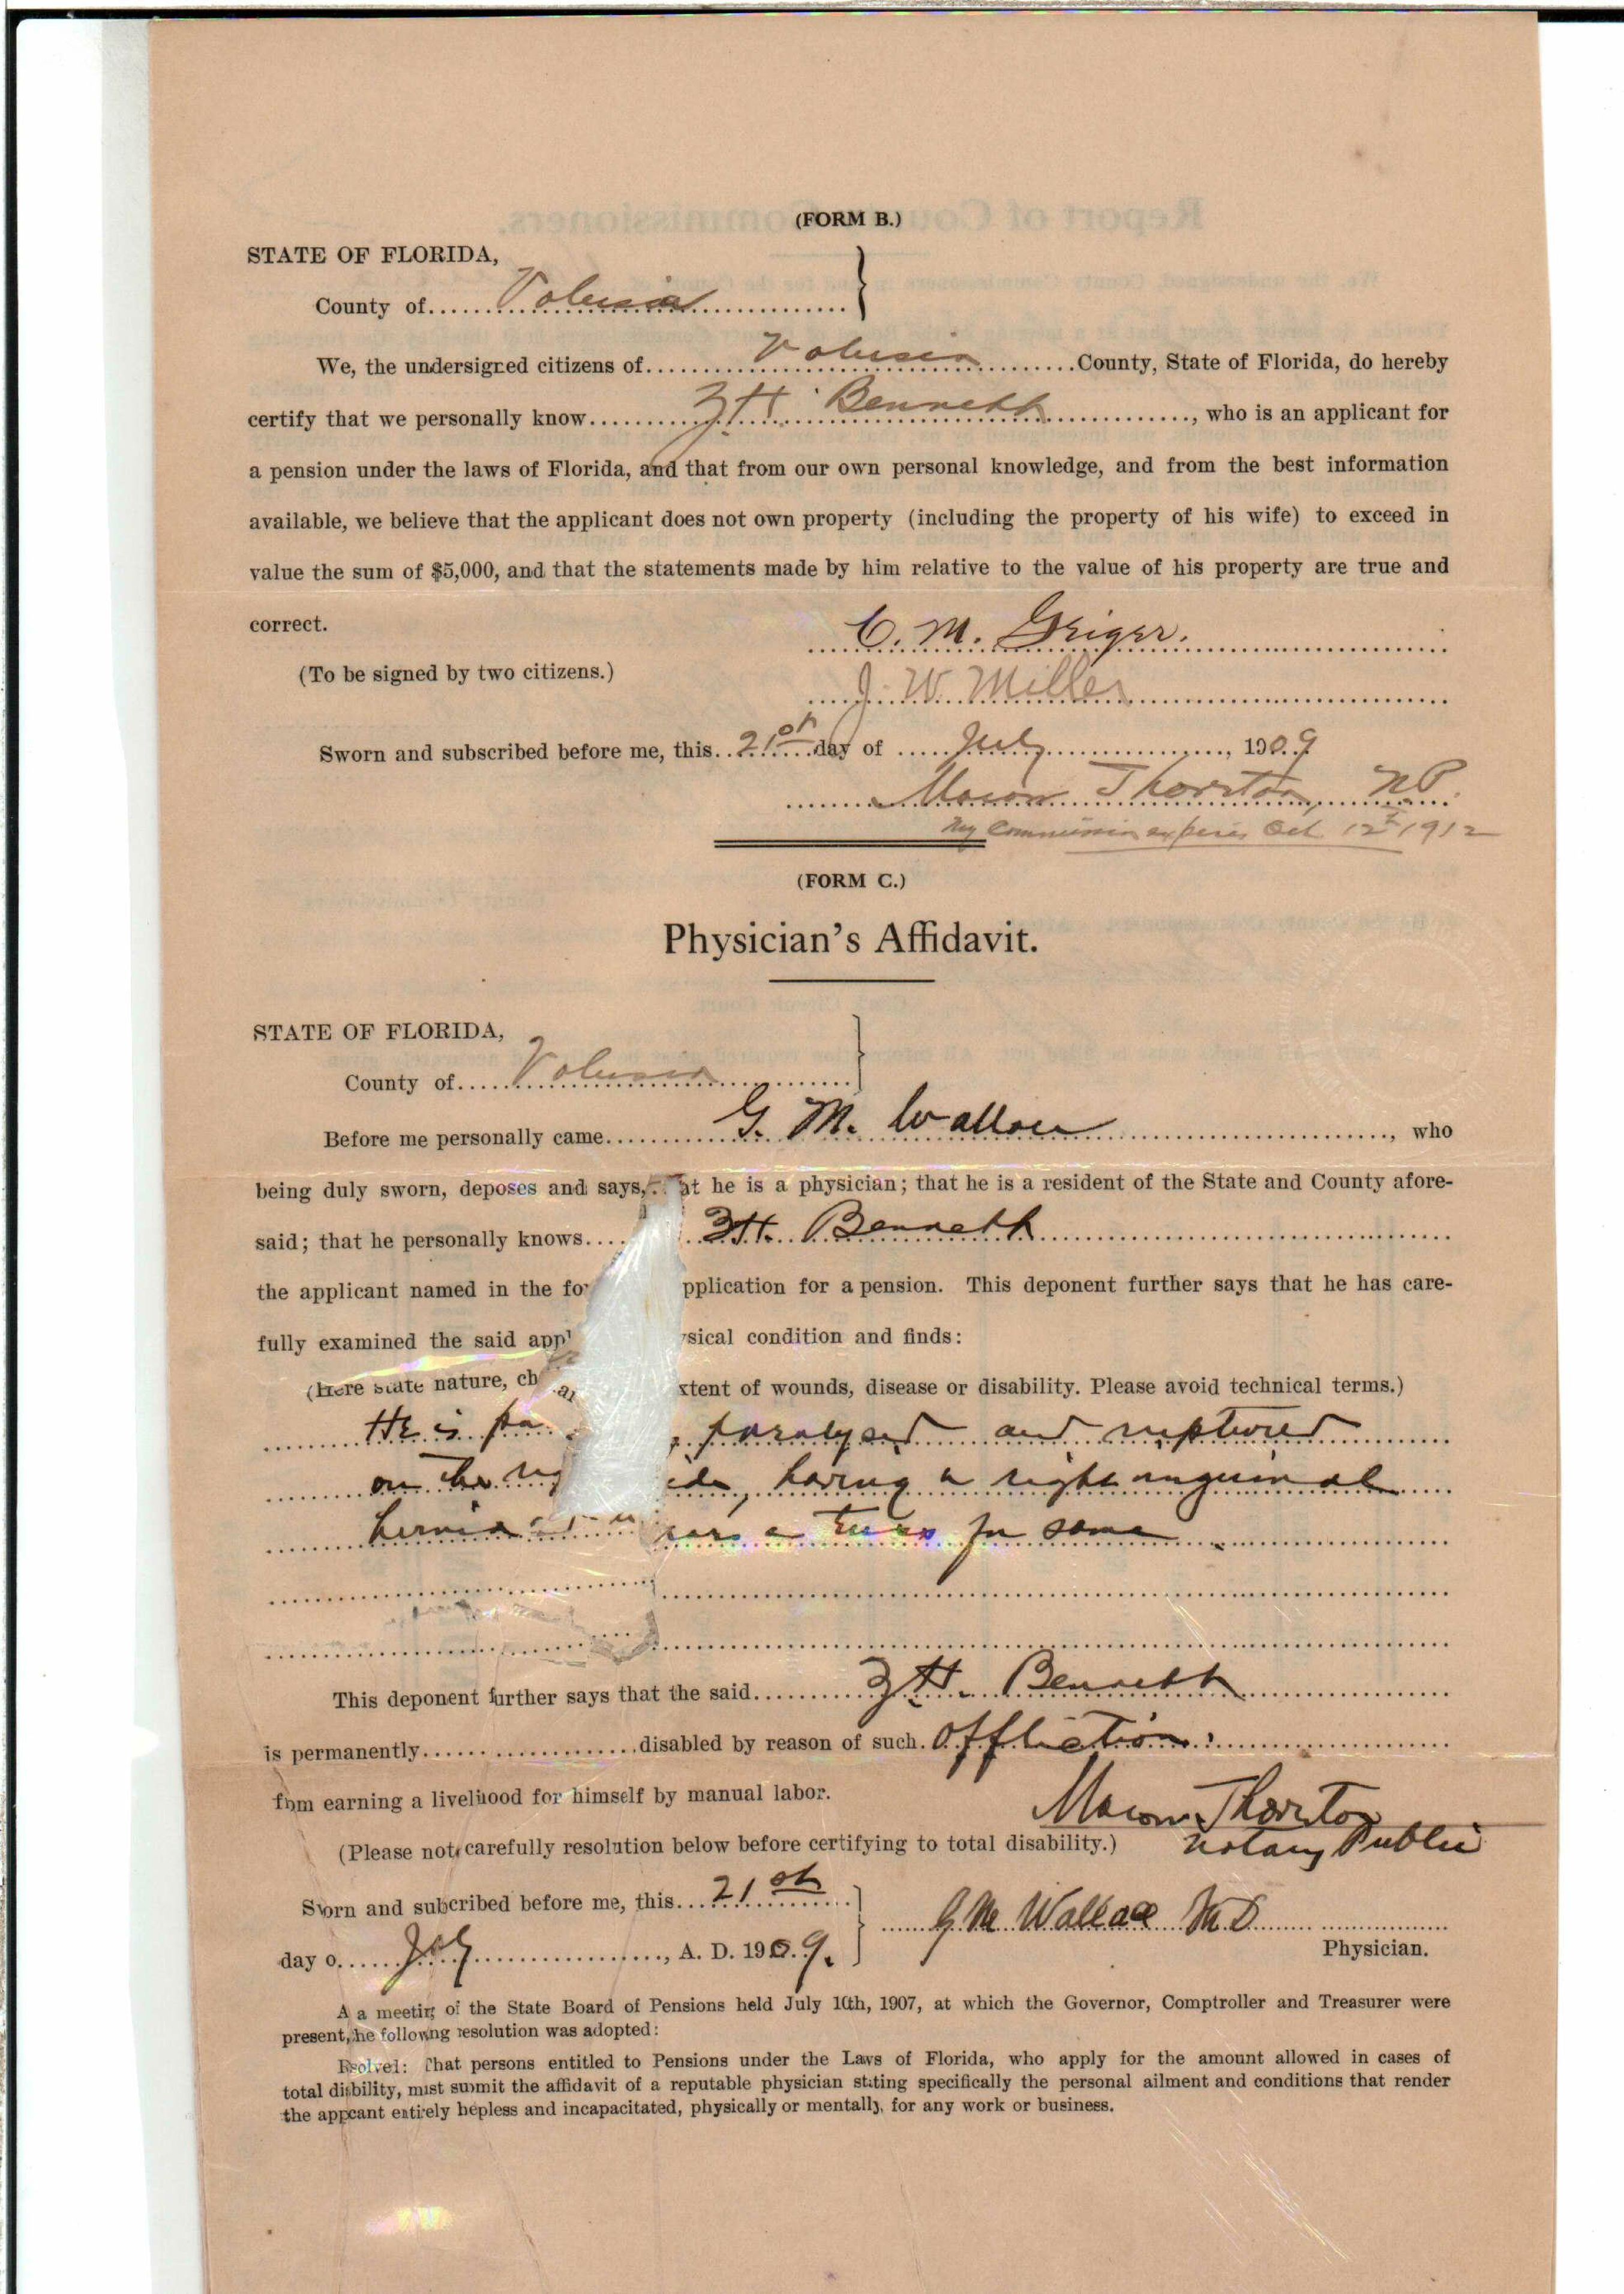 (FORM B.)
STATE OF FLORIDA,
County of Volusia
We, the undersigned citizens of Volusia County, State of Florida, do hereby
certify that we personally know Bennett, who is an applicant for
a pension under the laws of Florida, and that from our own personal knowledge, and from the best information
available, we believe that the applicant does not own property (including the property of his wife) to exceed in
value the sum of $5,000, and that the statements made by him relative to the value of his property are true and
correct.
C. M. Geiger.
(To be signed by two citizens.)
J. W. Miller
Sworn and subscribed before me, this 21st day of July, 1909
Macon Thornton, NP.
My Commission expires Oct 12th 1912
(FORM C.)
Physician's Affidavit.
STATE OF FLORIDA,
County of Volusia
Before me personally came G. M. Wallace, who
being duly sworn, deposes and says, at he is a physician; that he is a resident of the State and County afore-
said; that he personally knows H. Bennett
the applicant named in the fo pplication for a pension. This deponent further says that he has care-
fully examined the said app sical condition and finds:
(Here state nature, ch xtent of wounds, disease or disability. Please avoid technical terms.)
He is pa paralysed and ruptured
on the rig ide, having a right inguinal
hernia ears a truss for same
This deponent further says that the said H. Bennett
is permanently disabled by reason of such affliction
fom earning a livelihood for himself by manual labor.
Macon Thornton
(Please not carefully resolution below before certifying to total disability.) Notary Public
Sworn and subcribed before me, this 21st
G M Wallace M D
day o July, A. D. 1909.
Physician.
A a meeting of the State Board of Pensions held July 10th, 1907, at which the Governor, Comptroller and Treasurer were
present, he following resolution was adopted:
Resolved: That persons entitled to Pensions under the Laws of Florida, who apply for the amount allowed in cases of
total disbility, must submit the affidavit of a reputable physician stating specifically the personal ailment and conditions that render
the appcant entirely hepless and incapacitated, physically or mentally, for any work or business.